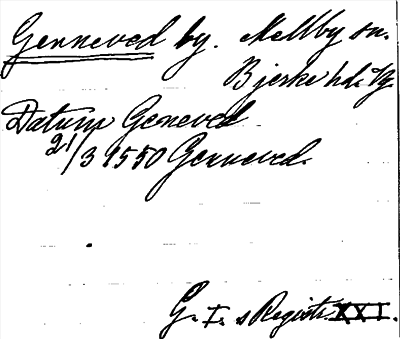 Genneved by. Mellby sn.
Bjerke hd. Vg
Datum Geneved
21/3 1550 Genneved.
G. I. s Registr. XXI.